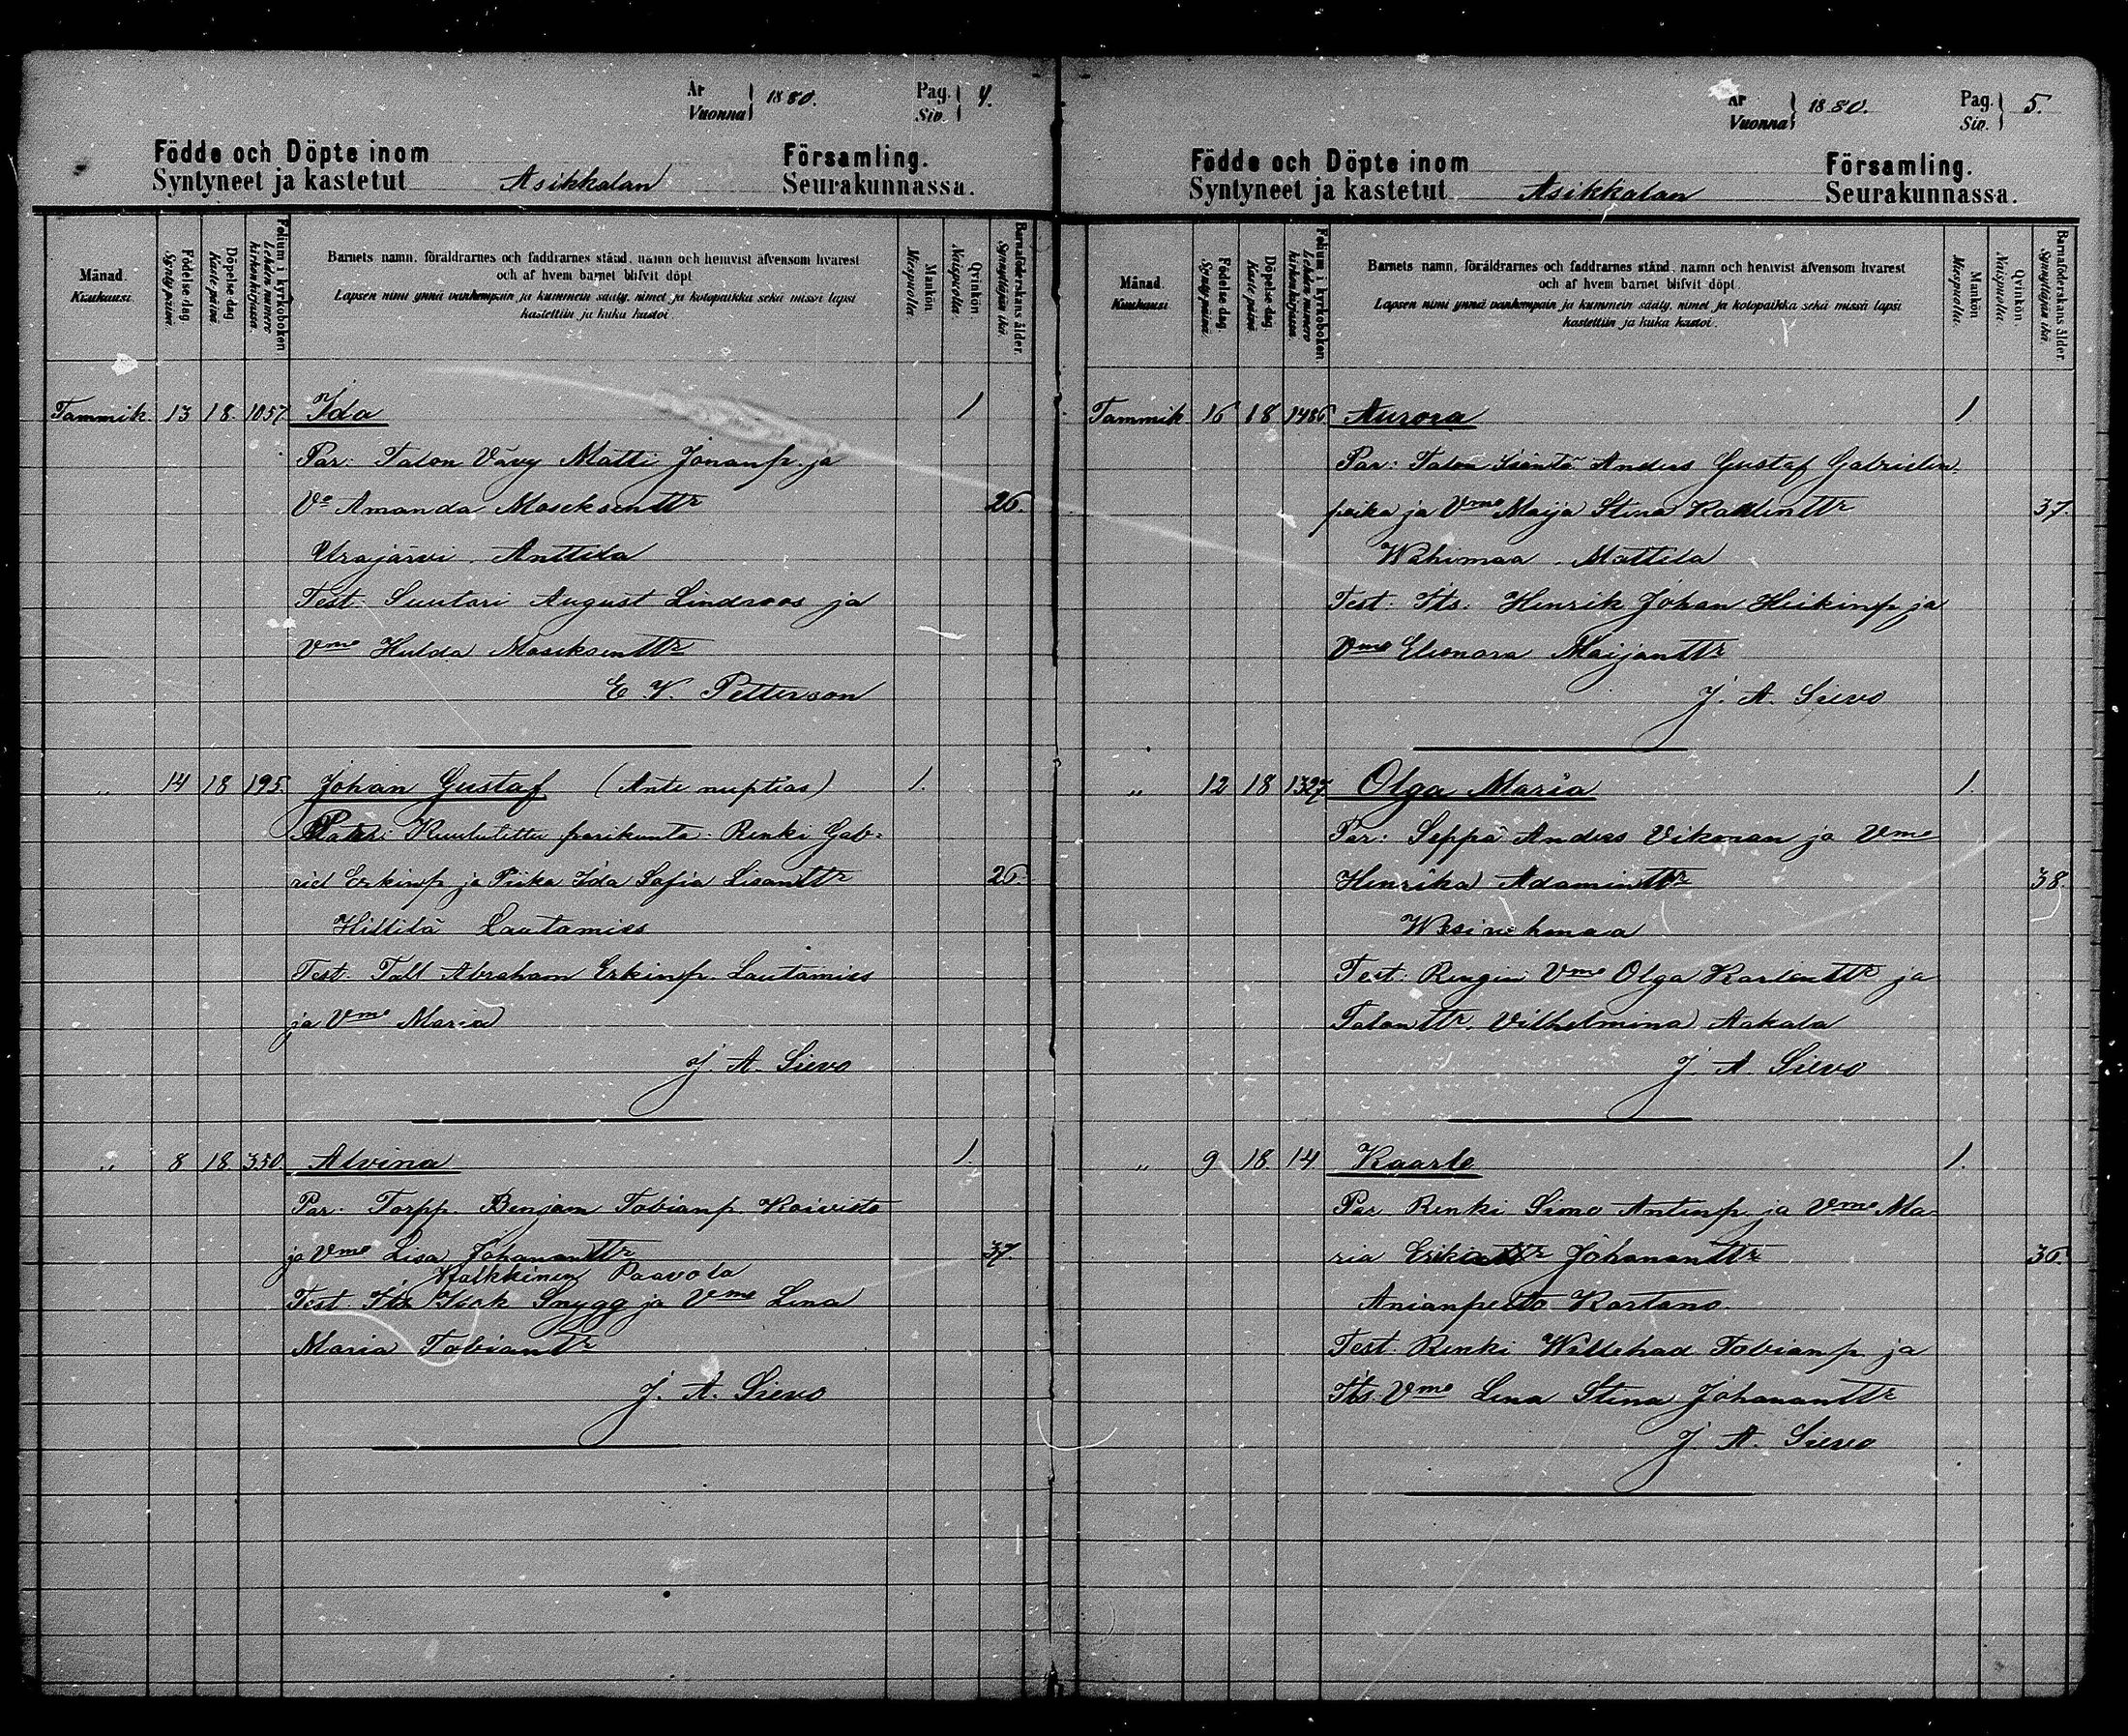 År
Vuonna } 1880.
Pag.
Siv. } 4.
Födde och Döpte inom Församling.
Syntyneet ja kastetut Asikkalan Seurakunnassa.
Månad.
Kuukausi.
Födelse dag
Synty päivä.
Döpelse dag
Kaste päivä
Folium i kyrkoboken
Lehden numero kirkonkirjassa.
Barnets namn, föräldrarnes och faddrarnes stånd, namn och hemvist äfvensom hvarest
och af hvem barnet blifvit döpt
Lapsen nimi ynnä vanhempain ja kummein sääty, nimet ja kotopaikka sekä missä lapsi
kastettiin ja kuka kastoi.
Mankön
Miespuolia
Qvinkön
Naispuolia.
Barnaföderskans ålder.
Synnyttäjän ikä.
Tammik. 13 18. 1057 Ida 1
Par: Talon Vävy Matti Jonanp. ja
Vo Amanda Moseksentt 26.
Urajärvi. Anttila
Test. Suutari August Lindroos ja
Vmo Hulda Moseksentt
E. V. Petterson
" 14 18 195. Johan Gustaf (Ante nuptias) 1.
Kuulutettu parikunta: Renki Gab-
riel Erkinp ja Piika Ida Sofia Lisantt 26.
Hillilä Lautamies
Test: Tall Abraham Erkinp. Lautamies
ja Vmo Maria
J. A. Sievo
" 8 18 350. Alvina 1.
Par: Torpp. Benjam Tobianp. Koivisto
ja Vmo Lisa Johanantt 37.
Kalkkinen Paavola
Test. Its Isak Snygg ja Vmo Lena
Maria Tobiantt
J. A. Sievo
År
Vuonna } 1880.
Pag.
Siv. } 5.
Födde och Döpte inom Församling.
Syntyneet ja kastetut Asikkalan Seurakunnassa.
Månad.
Kuukausi.
Födelse dag.
Synty päivä.
Döpelse dag
Kaste päivä
Folium i kyrkoboken.
Lehden numero kirkonkirjassa.
Barnets namn, föräldrarnes och faddrarnes stånd, namn och hemvist äfvensom hvarest
och af hvem barnet blifvit döpt.
Lapsen nimi ynnä vanhempain ja kummein sääty, nimet ja kotopaikka sekä missä lapsi
kastettiin ja kuka kastoi.
Mankön
Miespuolia.
Qvinkön.
Naispuolia.
Barnaföderskans ålder.
Synnyttäjän ikä.
Tammik 16 18 1486 Aurora 1
Par: Talon Isäntä Anders Gustaf Gabrielin
poika ja Vmo Maija Stina Kallentt 37.
Wähimaa. Mattila
Test: Its. Henrik Johan Heikinp ja
Vmo Eleonora Maijantt
J. A. Sievo
" 12 18 1327 Olga Maria 1.
Par: Seppä Anders Vikman ja Vmo
Henrika Adamintt 38.
Wesivehmaa
Test: Rengin Vmo Olga Karlentt ja
Talontt. Vilhelmina Aakala
J. A. Sievo
" 9 18 14 Kaarle 1.
Par. Renki Simo Antinp. ja Vmo Ma-
ria Johanantt 36.
Anianpelto Kartano.
Test. Renki Willehad Tobianp ja
Its. Vmo Lena Stina Johanantt
J. A. Sievo